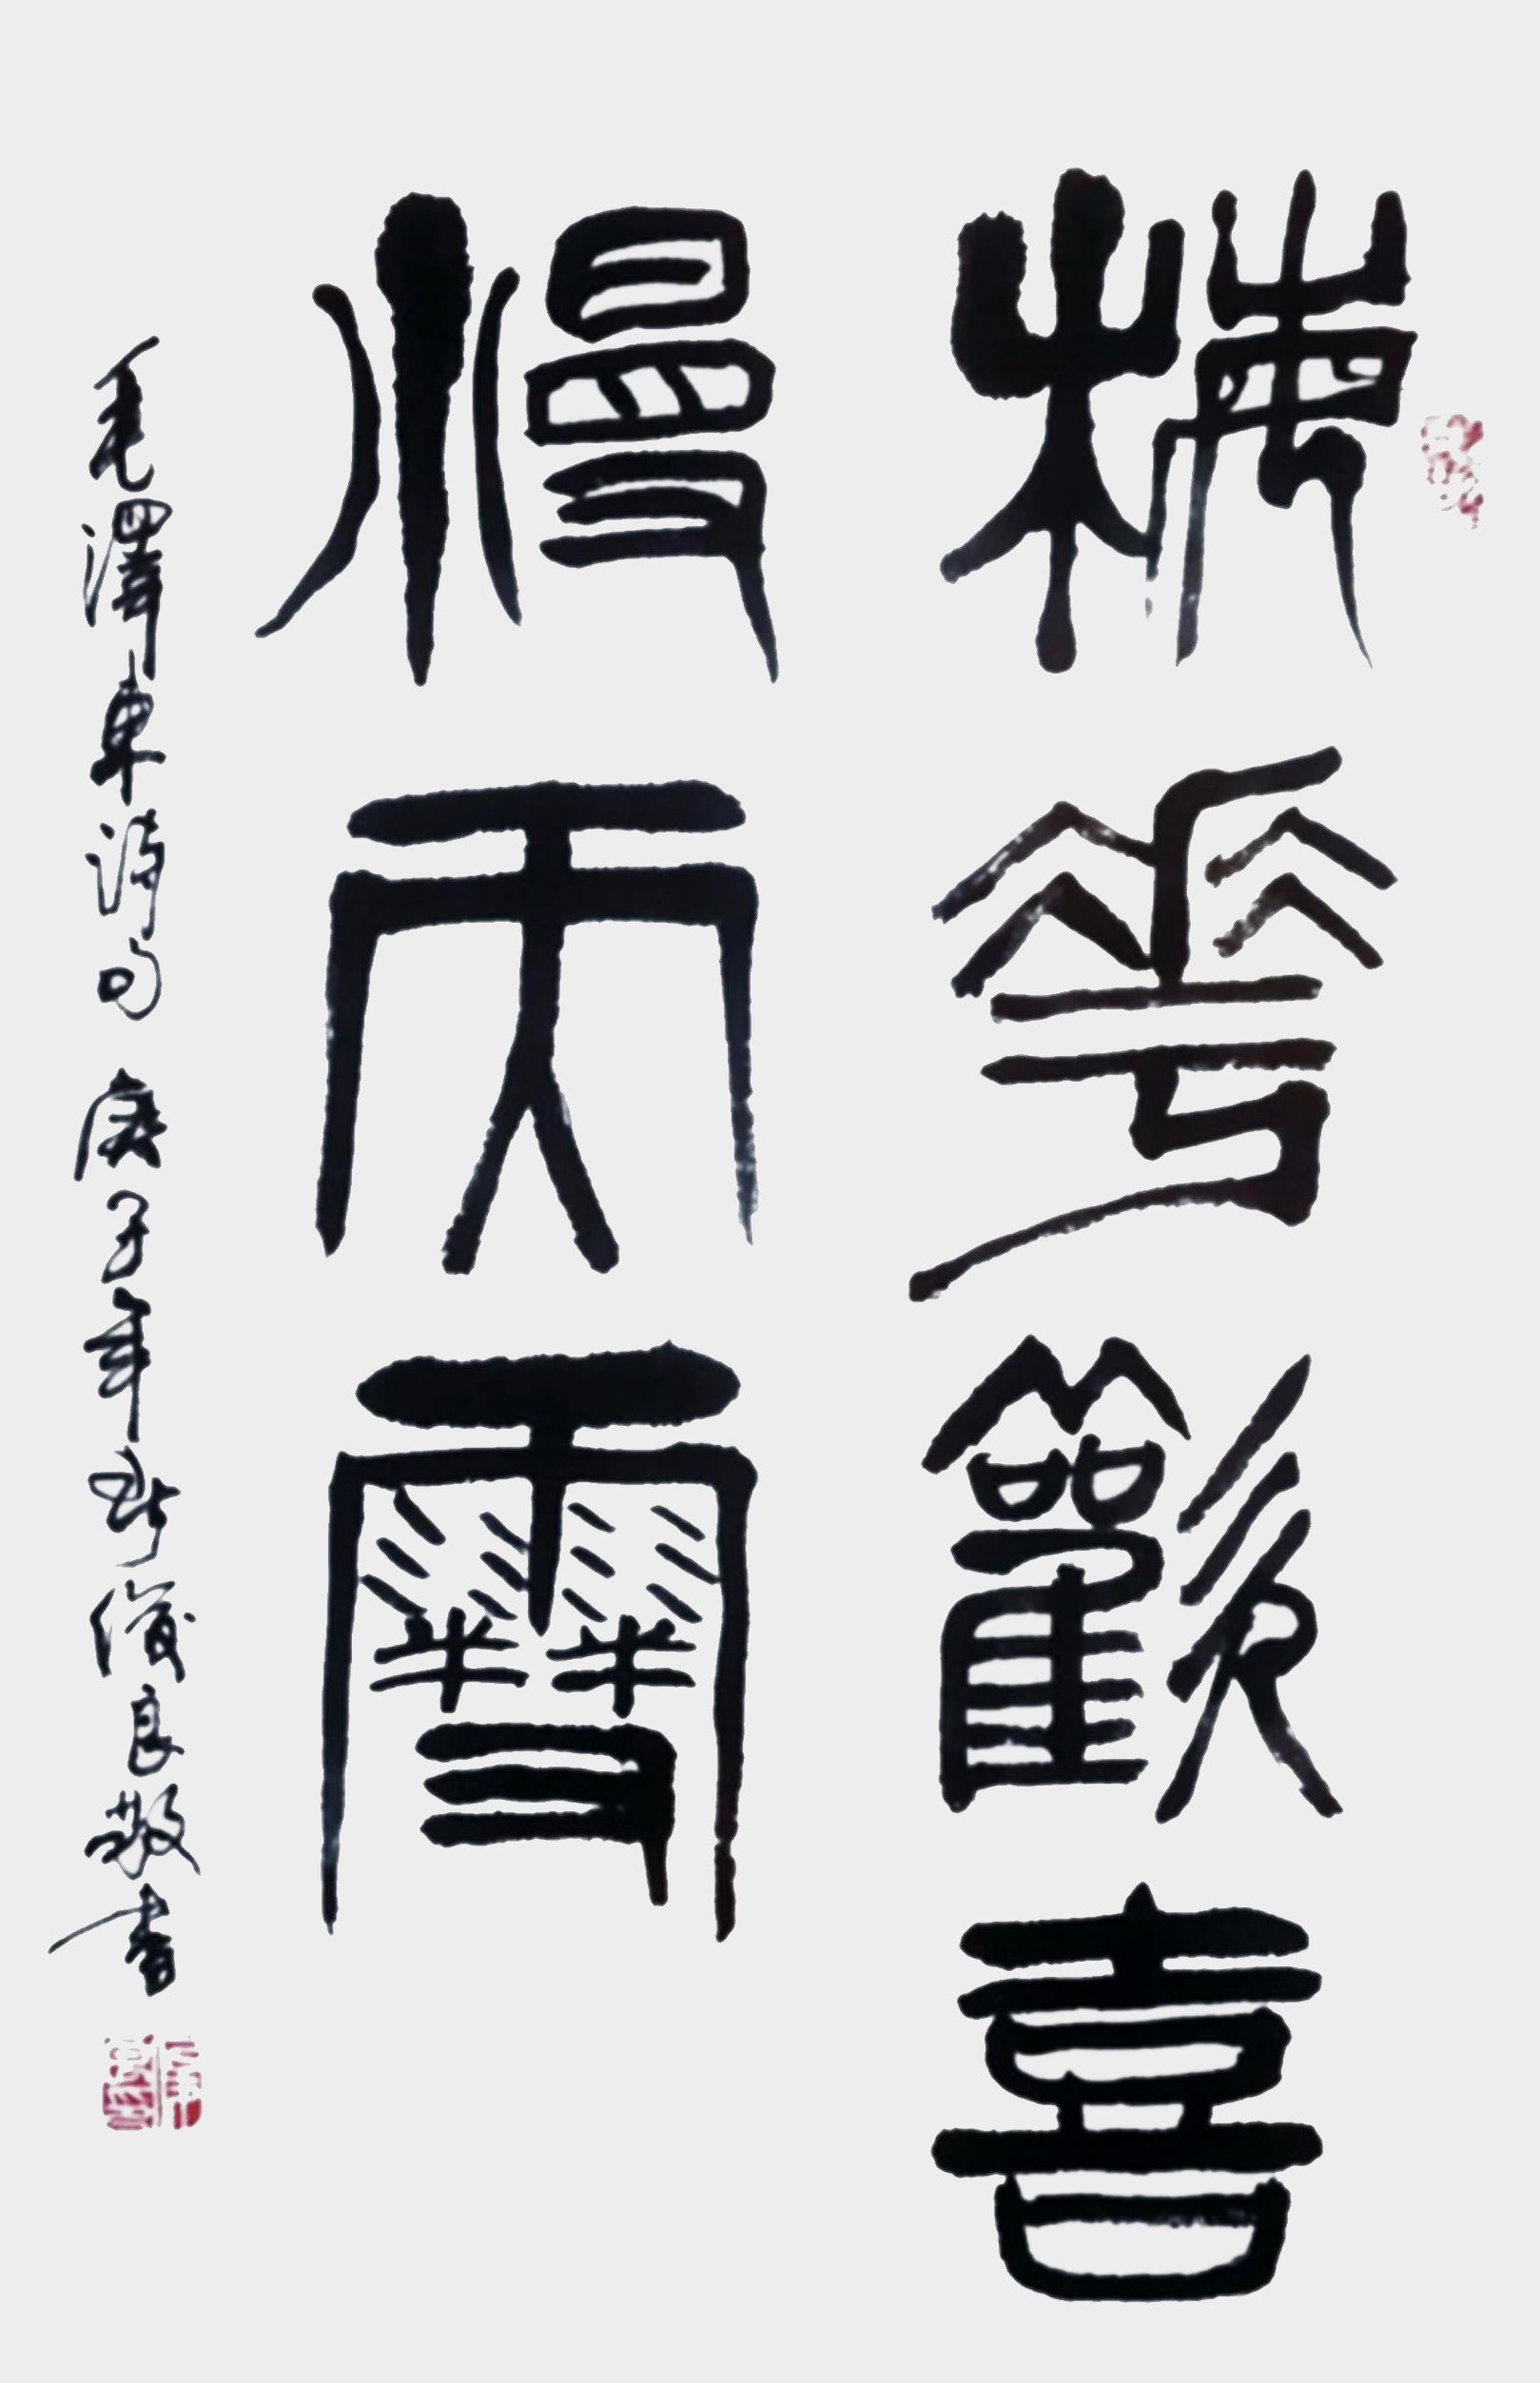 梅花歡喜
慢天雪
毛澤東詩句 庚子年秋 俊良敬書